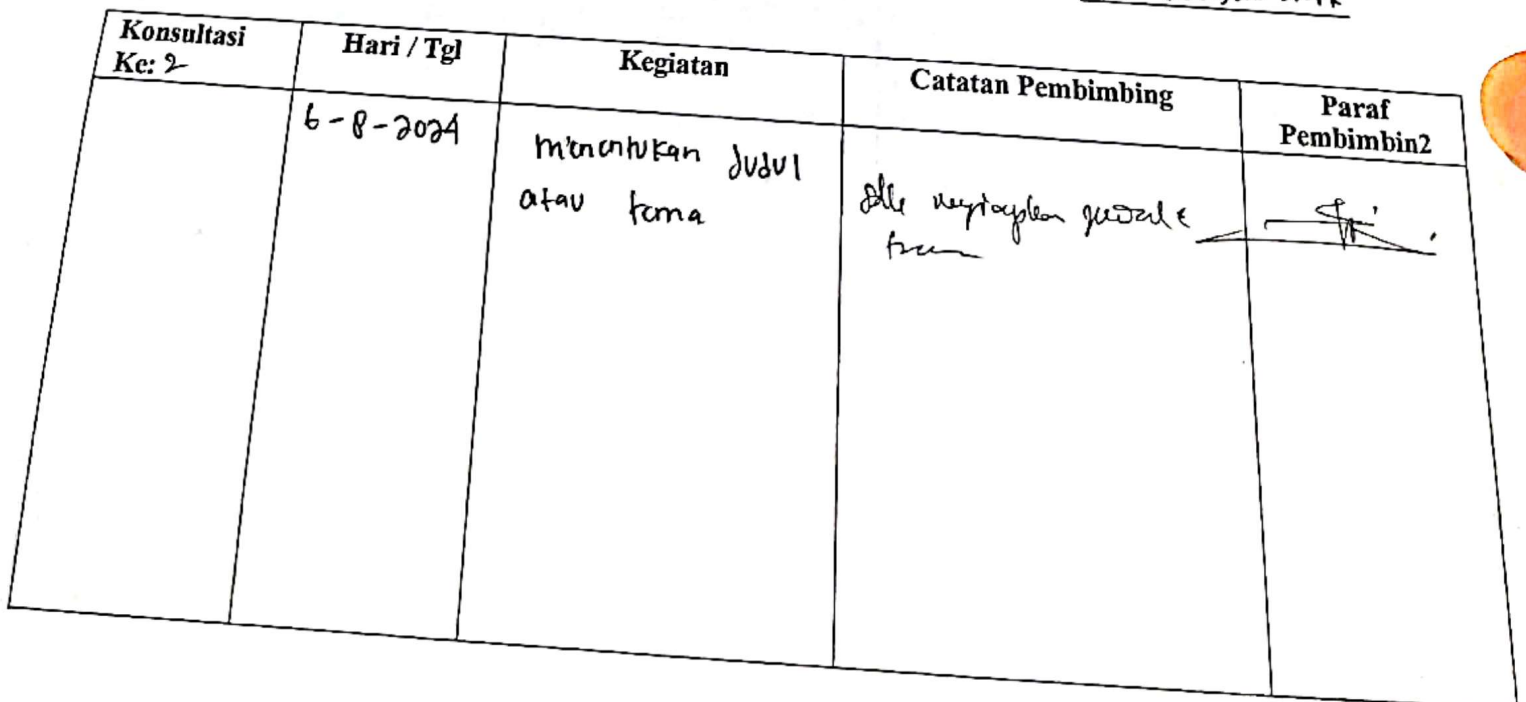 Konsultasi
Ke: 2
Hari / Tgl
Kegiatan
Catatan Pembimbing
Paraf
Pembimbin2
6-8-2024
menentukan Judul
atau tema